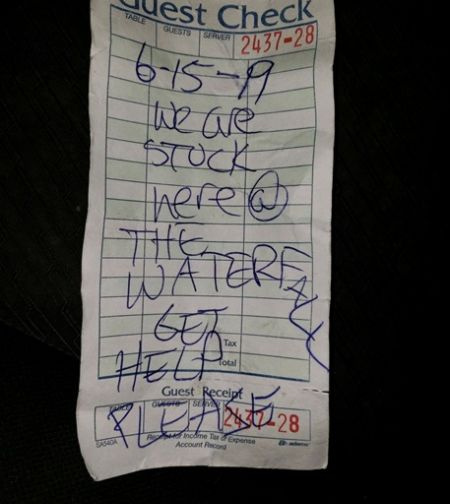 Guest Check
TABLE GUESTS SERVER
2437-28
6-15-19
we are
STUCK
here @
THE
WATERFALL
GET
Tax
HELP
Total
Guest Receipt
GUESTS SERVER
PLEASE
2437-28
SA540A
Receipt for Income Tax or Expense
Account Record
adams